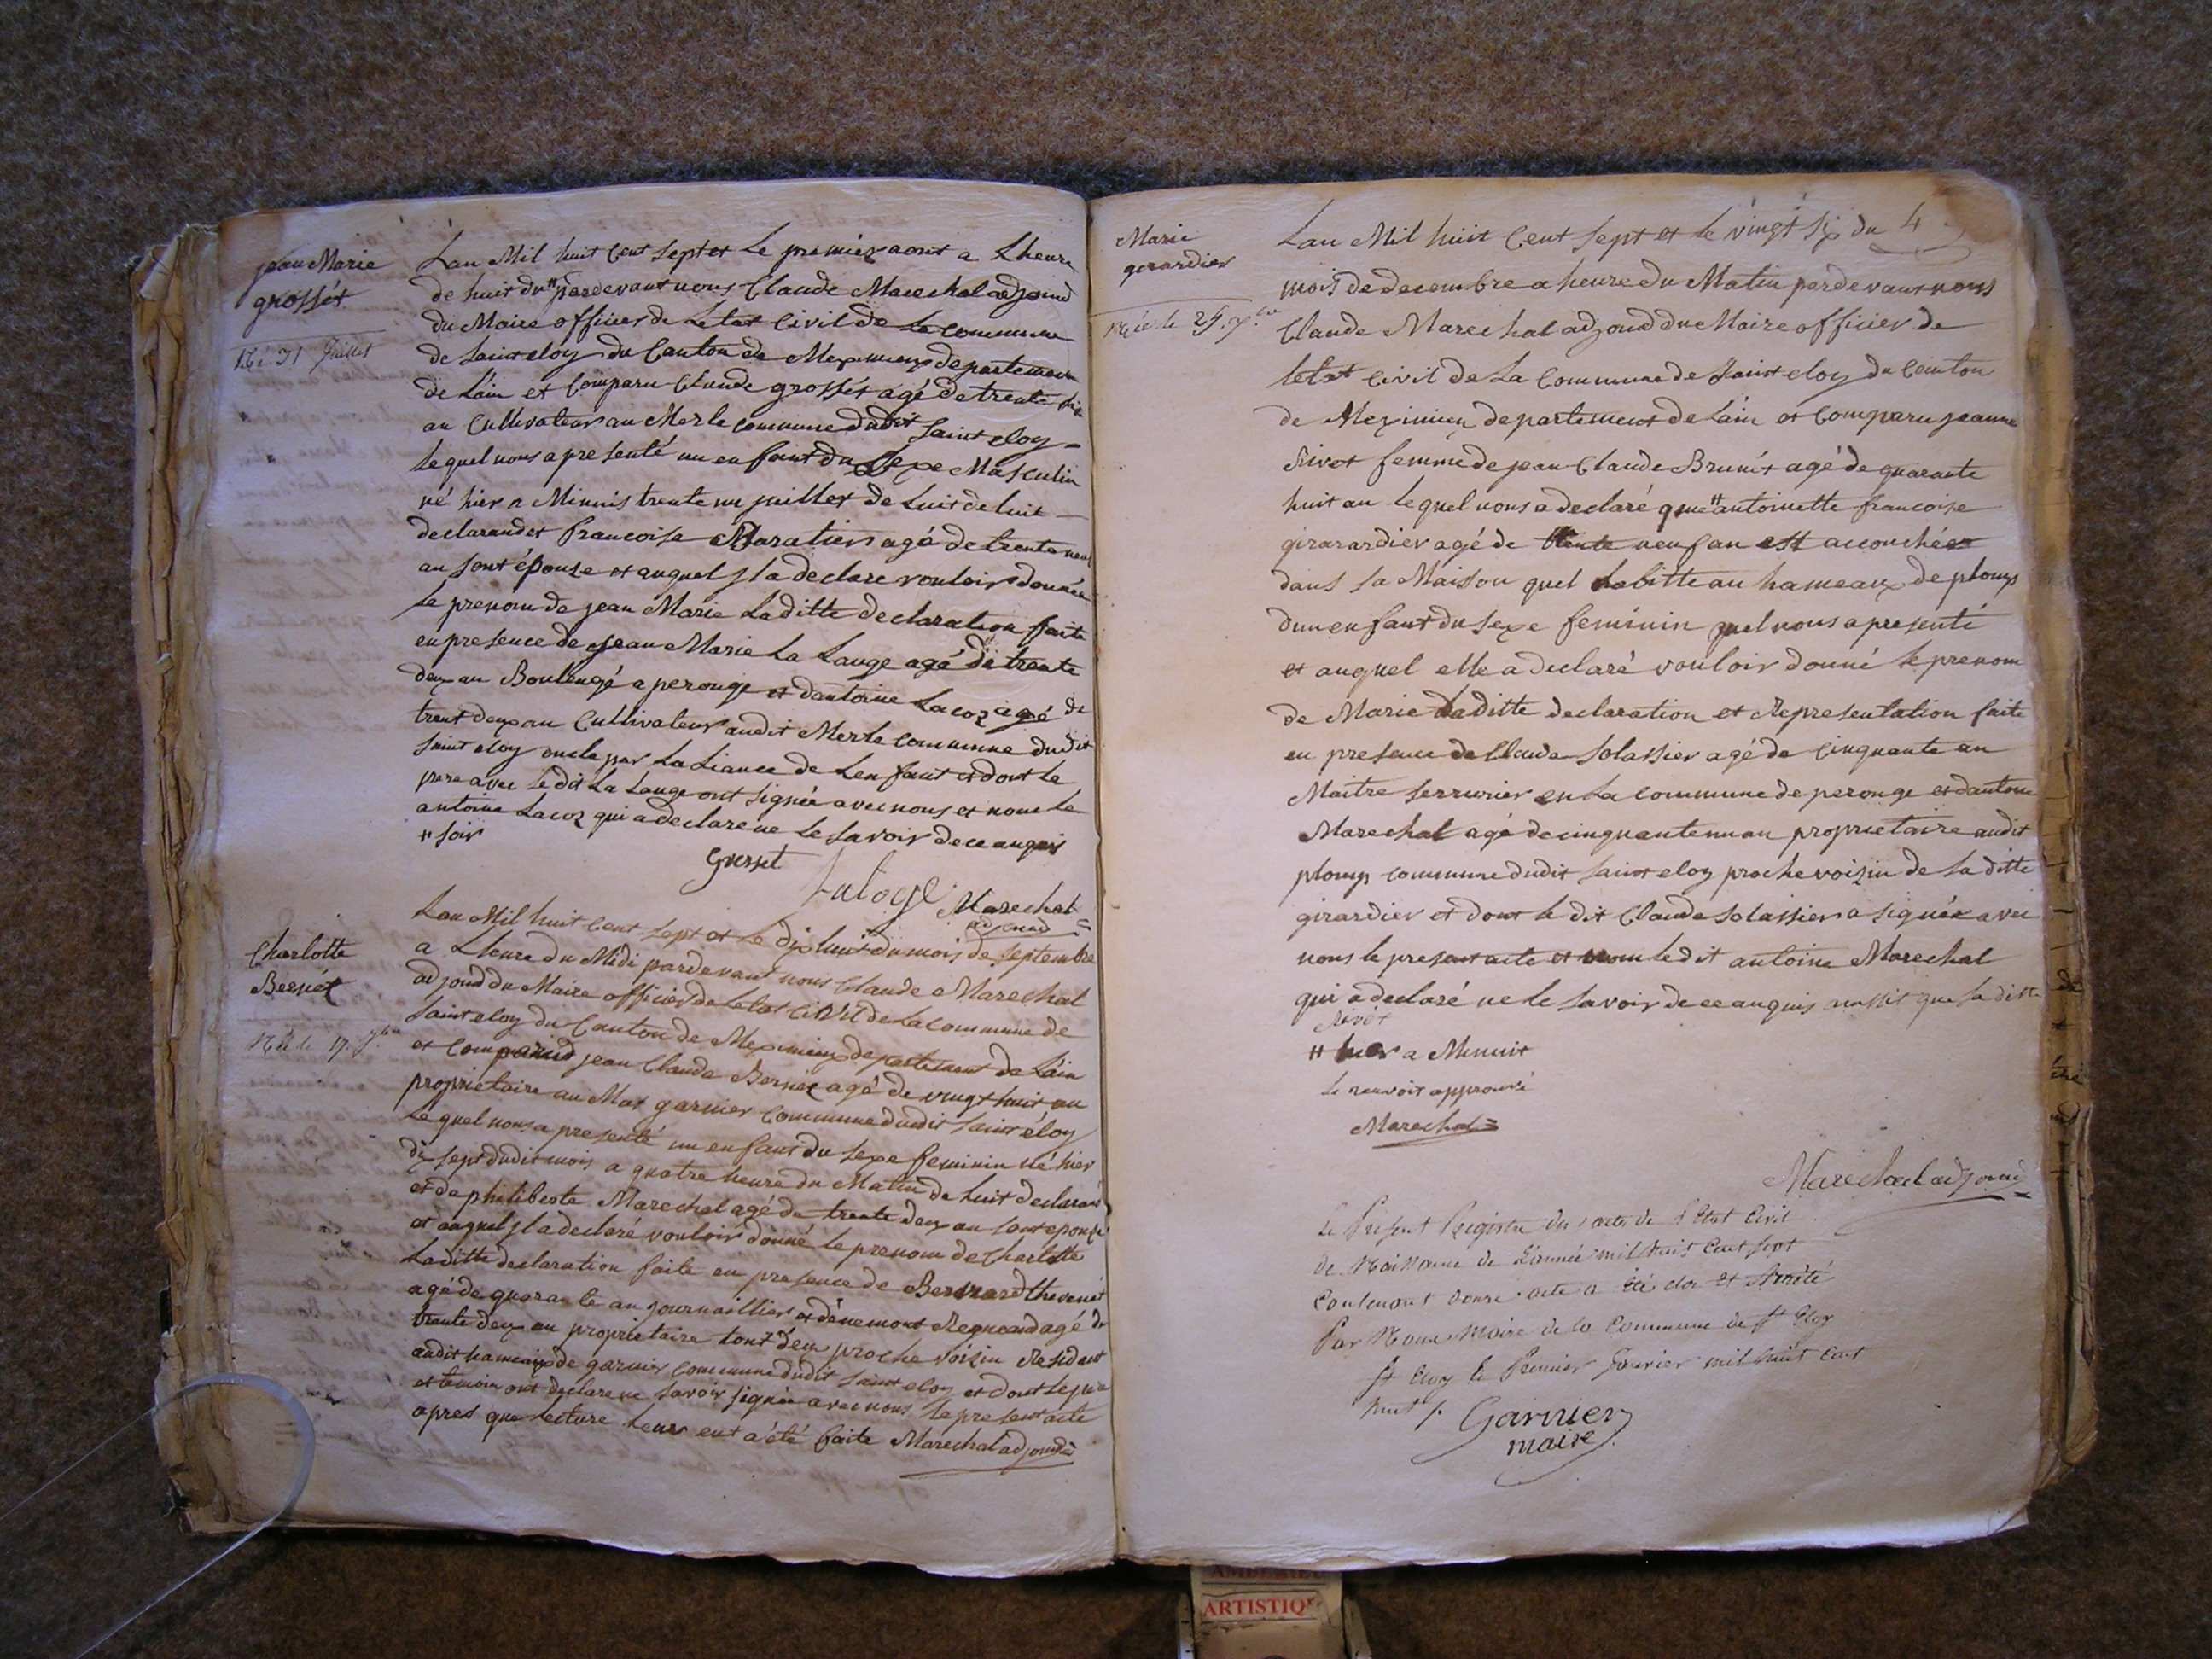 jean Marie
grossét
Né 31 Juillet
Lan Mil huit Cent Sept et Le premier aout a Lheure
de huit du # pardevant nous Claude Marechal adjoind
du Maire officier de Letat Civil de La commune
de Saint eloy du Canton de Meximieux departement
de Lain et Comparu Claude grossét agé de trente six
an Cultivateur au Merle commune dudit Saint eloy
Lequel nous a presenté un enfant du Sexe Masculin
né hier a Minuis trente un juillet de Luit deluit
declarand et francoise Baratier agé de trente neuf
an sont épouse et auquel jl a declare vouloir donnér
Le prenom de jean Marie Laditte declaration faite
en presence de jean Marie La Lauge agé de trente
deux an Boulengé a perouge et dantoine Lacoz agé de
trent deux an Cultivateur audit Merle commune dudit
Saint eloy oncle par La Liance de Lenfant et dont Le
pere avec Ledit La Lauge ont signée avec nous et nom Le
antoine Lacoz qui a declare ne Le savoir de ce anquis
# soir
Grosset
Laloge
Marechal
adjoind
Charlotte
Berniét
Née le 17. 7bre
Lan Mil huit Cent Sept et Le dix huit du mois de Septembre
a Lheure du Midi pardevant nous Claude Marechal
adjoind du Maire officier de Letat Civil de La Commune de
Saint eloy du Canton de Meximieux departement de Lain
et Comparu jean Claude Berniét agé de vingt huit an
proprietaire au Mas garnier Commune dudit Saint eloy
Lequel nous a presenté un enfant du Sexe feminin né hier
dix sept dudit mois a quatre heure du Matin de Luit declarant
et de philiberte Marechal agé de trente deux an sont epouse
et auquel jl a declaré vouloir donné le prenom de Charlotte
Laditte declaration faite en presence de Bernard thevenét
agé de quarante an journaillier et dénemont Regneand agé de
trente deux an proprietaire tout deux proche voizin Résident
audit hameaux de garnier commune dudit Saint eloy et dont Le pere
et temoin ont declare ne savoir signée avec nous Le present acte
apres que Lecture Leurs ent a été faite Marechal adjoind
Marie
gerardier
Née le 25. xbre
Lan Mil huit Cent Sept et le vingt six du 4
mois de decembre a heure du Matin pardevant nous
Claude Marechal adjoind du Maire officier de
letat Civil de La Commune de Saint eloy du Canton
de Meximieux departement de Lain et Comparu jeanne
Rivét femme de jean Claude Brunét agé de quarante
huit an Lequel nous a declaré que # antoinette francoise
girarardier agé de trente neuf an est accouchée
dans sa Maison quel habitte au hameaux de plouys
dun enfant du Sexe feminin quel nous a presenté
et auquel elle a declaré vouloir donné le prenom
de Marie Laditte declaration et Representation faite
en presence de Claude Solassier agé de Cinquante an
Maitre Serrurier en La commune de perouge et dantoine
Marechal agé de cinquante un an proprietaire audit
plouys commune dudit Saint eloy proche voizin de Laditte
girardier et dont le dit Claude Solassier a signée avec
nous le present acte et nom le dit antoine Marechal
qui a declaré ne le savoir de ce anquis aussit que Laditte
Rivét
# hier a Minuit
le renvoit approuvé
Marechal
Marechal adjoind
Le Present Registre des actes de l'Etat Civil
de Naissance de L'année mil huit Cent Sept
Contenant acte a été clos et Arrêté
Par Nous Maire de la Commune de St Eloy
St Eloy le Premier Janvier mil huit Cent
huit /.
Garnier
maire
ARTISTIQ